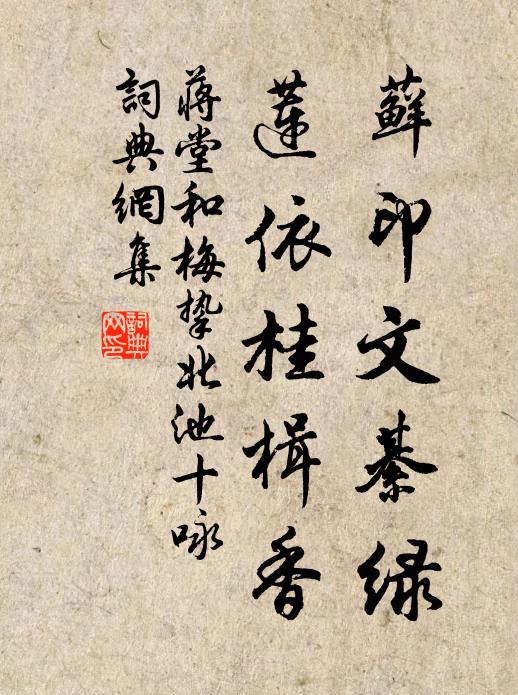 蘚印文綦綠
蓮依桂楫香
蔣堂和梅摯北池十咏
詞典網集
詞典網印